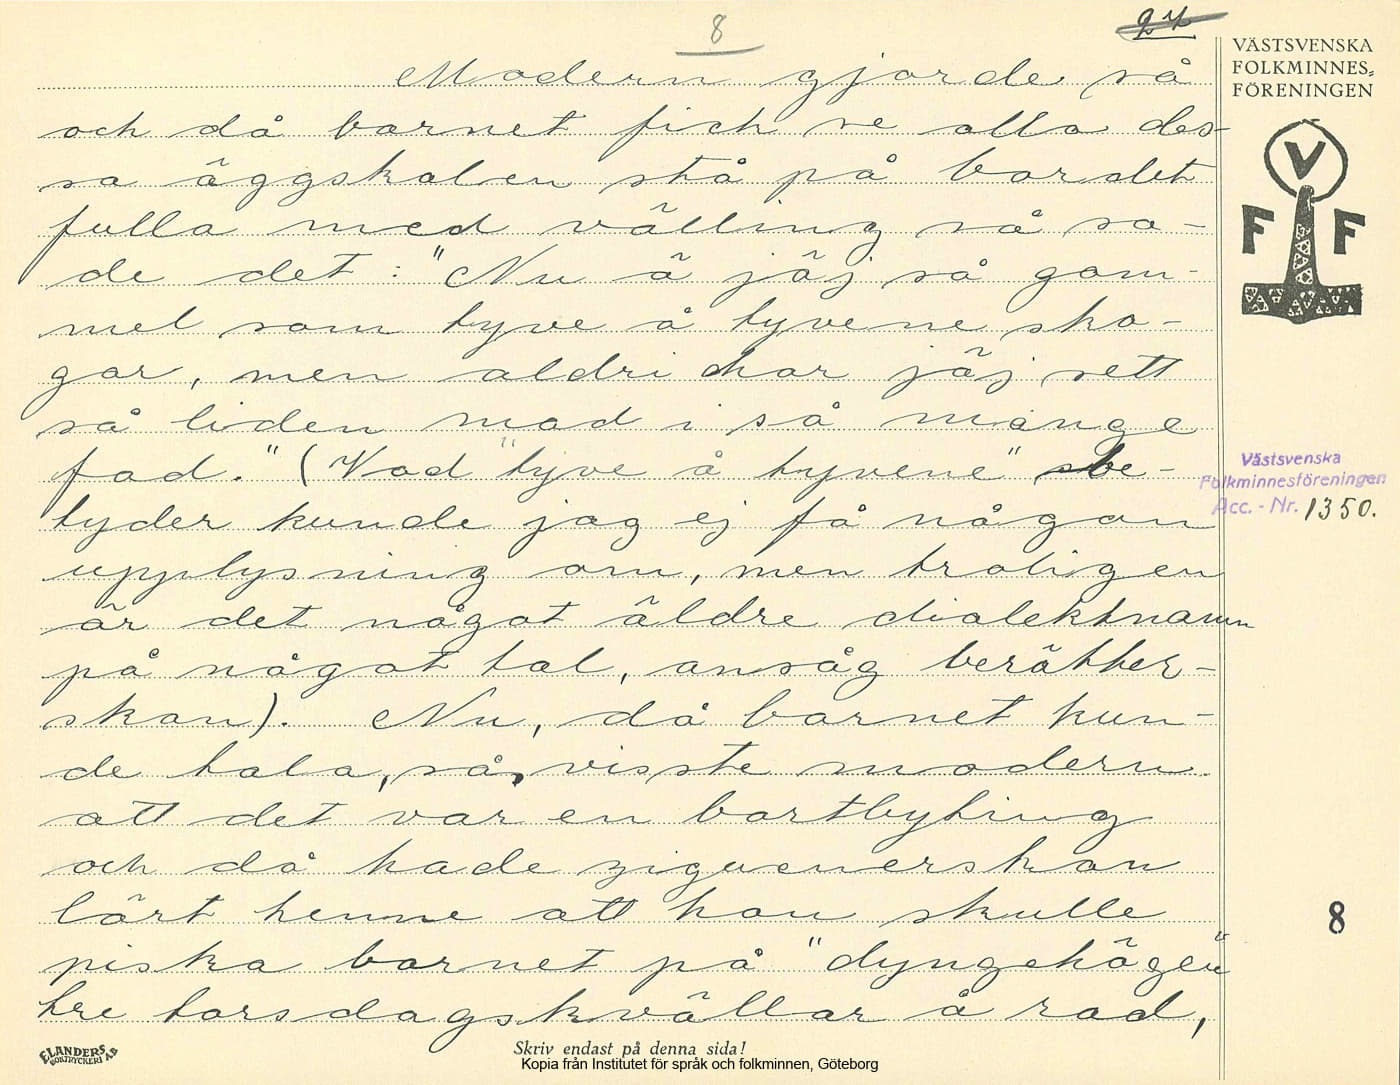 8
27
Modern gjorde så
och då barnet fick se alla des-
sa äggskalen stå på bordet
fulla med välling så sa-
de det: "Nu ä jäj så gam-
mel som tyve å tyvene sko-
gar, men aldri har jäj sett
så liden mad i så mange
fad." (Vad "tyve å tyvene" be-
tyder kunde jag ej få någon
upplysning om, men troligen
är det något äldre dialektnamn
på något tal, ansåg berätter-
skan). Nu, då barnet kun-
de tala, så, visste modern
att det var en bortbyting
och då hade ziguenerskan
lärt henne att hon skulle
piska barnet på "dyngehögen"
tre torsdagskvällar å rad,
VÄSTSVENSKA
FOLKMINNES-
FÖRENINGEN
V
F F
Västsvenska
Folkminnesföreningen
Acc. - Nr. 1350.
8
ELANDERS
BOKTRYCKERI AB
Skriv endast på denna sida!
Kopia från Institutet för språk och folkminnen, Göteborg